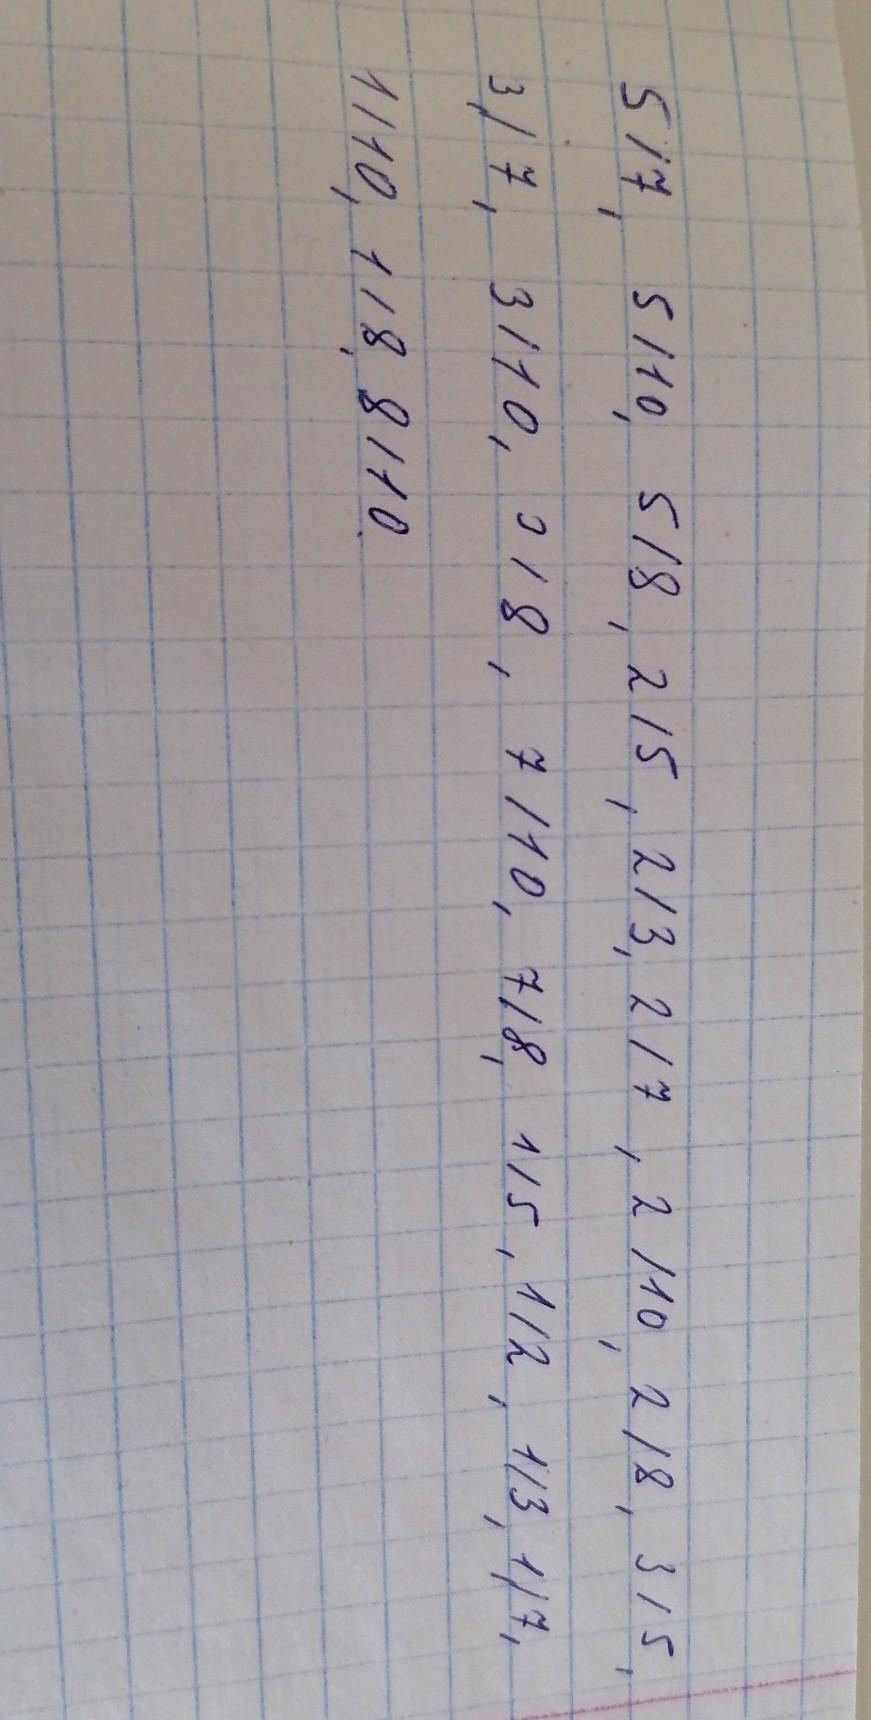 5/7, 5/10, 5/8, 2/5, 2/3, 2/7, 2/10, 2/8, 3/5,
3/7, 3/10, 3/8, 7/10, 7/8, 1/5, 1/2, 1/3, 1/7,
1/10, 1/8, 8/10.